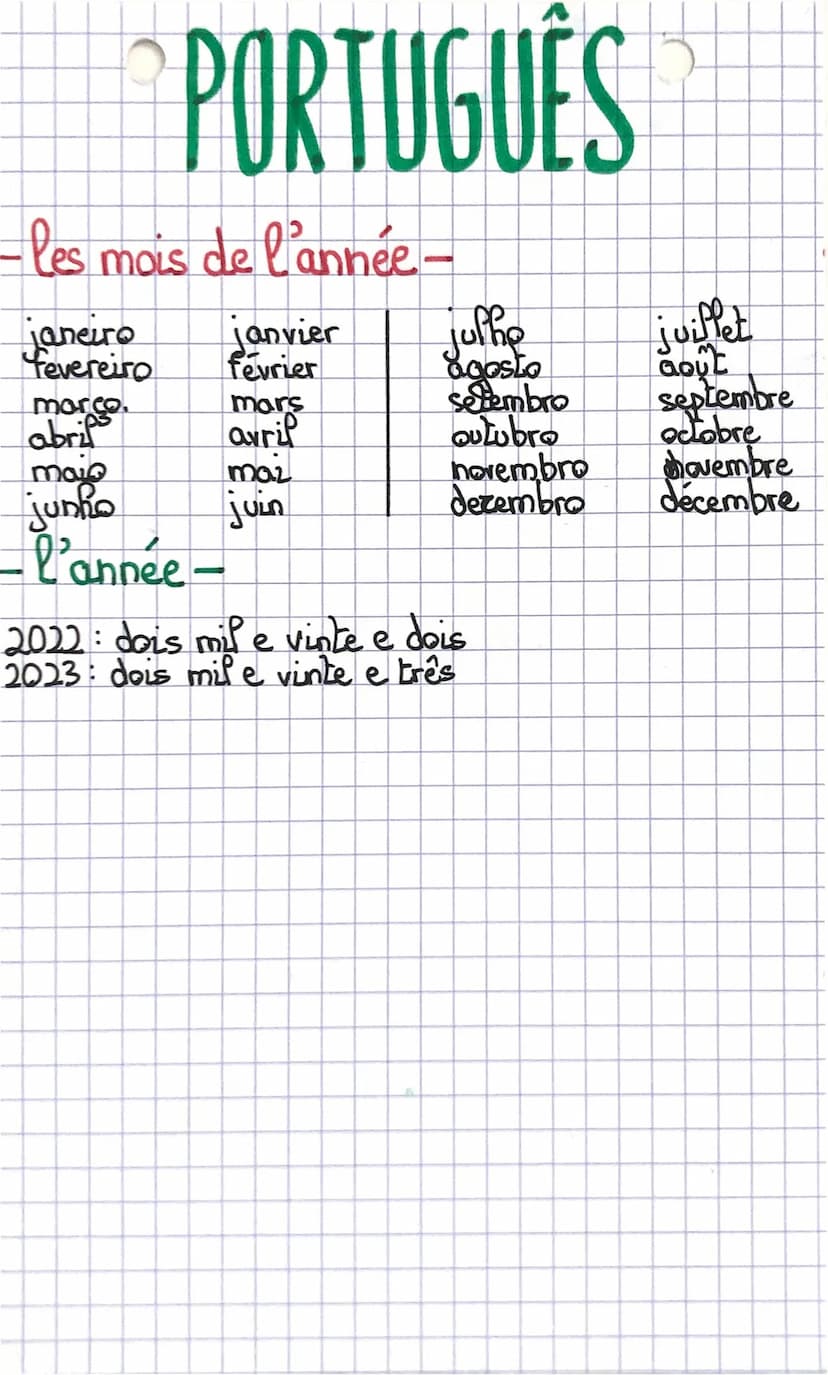 PORTUGUÊS
- les mois de l'année -
janeiro janvier julho juillet
fevereiro février agosto août
março. mars setembro septembre
abril avril outubro octobre
maio mai novembro novembre
junho juin dezembro décembre
- l'année -
2022 : dois mil e vinte e dois
2023 : dois mil e vinte e três